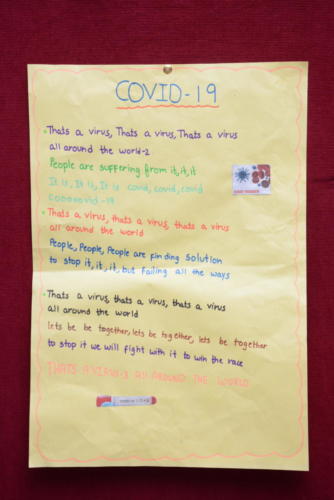 COVID-19
Thats a virus, Thats a virus, Thats a virus
all around the world-2
People are suffering from it, it, it
It is, It is, It is covid, covid, covid
-19
Thats a virus, thats a virus, thats a virus
all around the world
People, People, People are finding solution
to stop it, it, it, but failing all the ways
Thats a virus, thats a virus, thats a virus
all around the world
lets be be together, lets be together, lets be together
to stop it we will fight with it to win the race
THATS A VIRUS-3 All AROUND THE WORLD